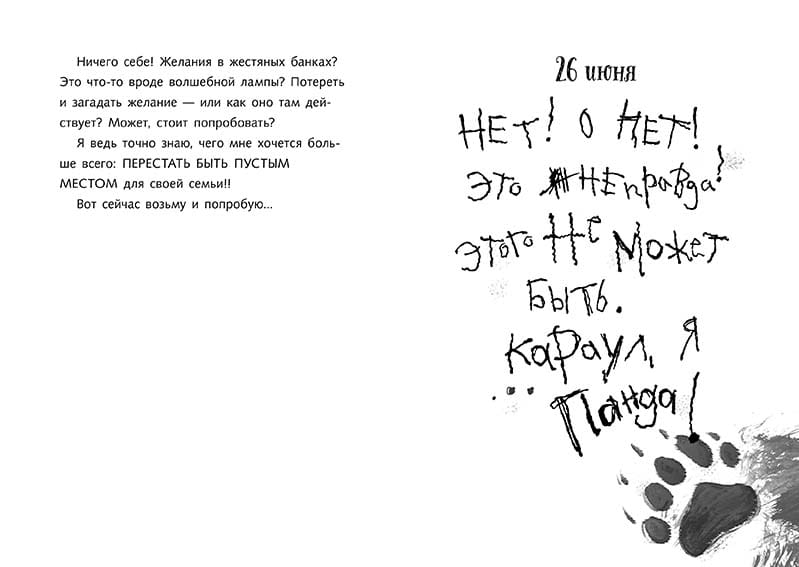 Ничего себе! Желания в жестяных банках?
Это что-то вроде волшебной лампы? Потереть
и загадать желание — или как оно там дей-
ствует? Может, стоит попробовать?
Я ведь точно знаю, чего мне хочется боль-
ше всего: ПЕРЕСТАТЬ БЫТЬ ПУСТЫМ
МЕСТОМ для своей семьи!!
Вот сейчас возьму и попробую...
26 июня
НЕТ! О НЕТ!
ЭТО НЕправда!
ЭТОГО НЕ МОЖЕТ
БЫТЬ.
КАРАУЛ, Я
... ПАНДА!